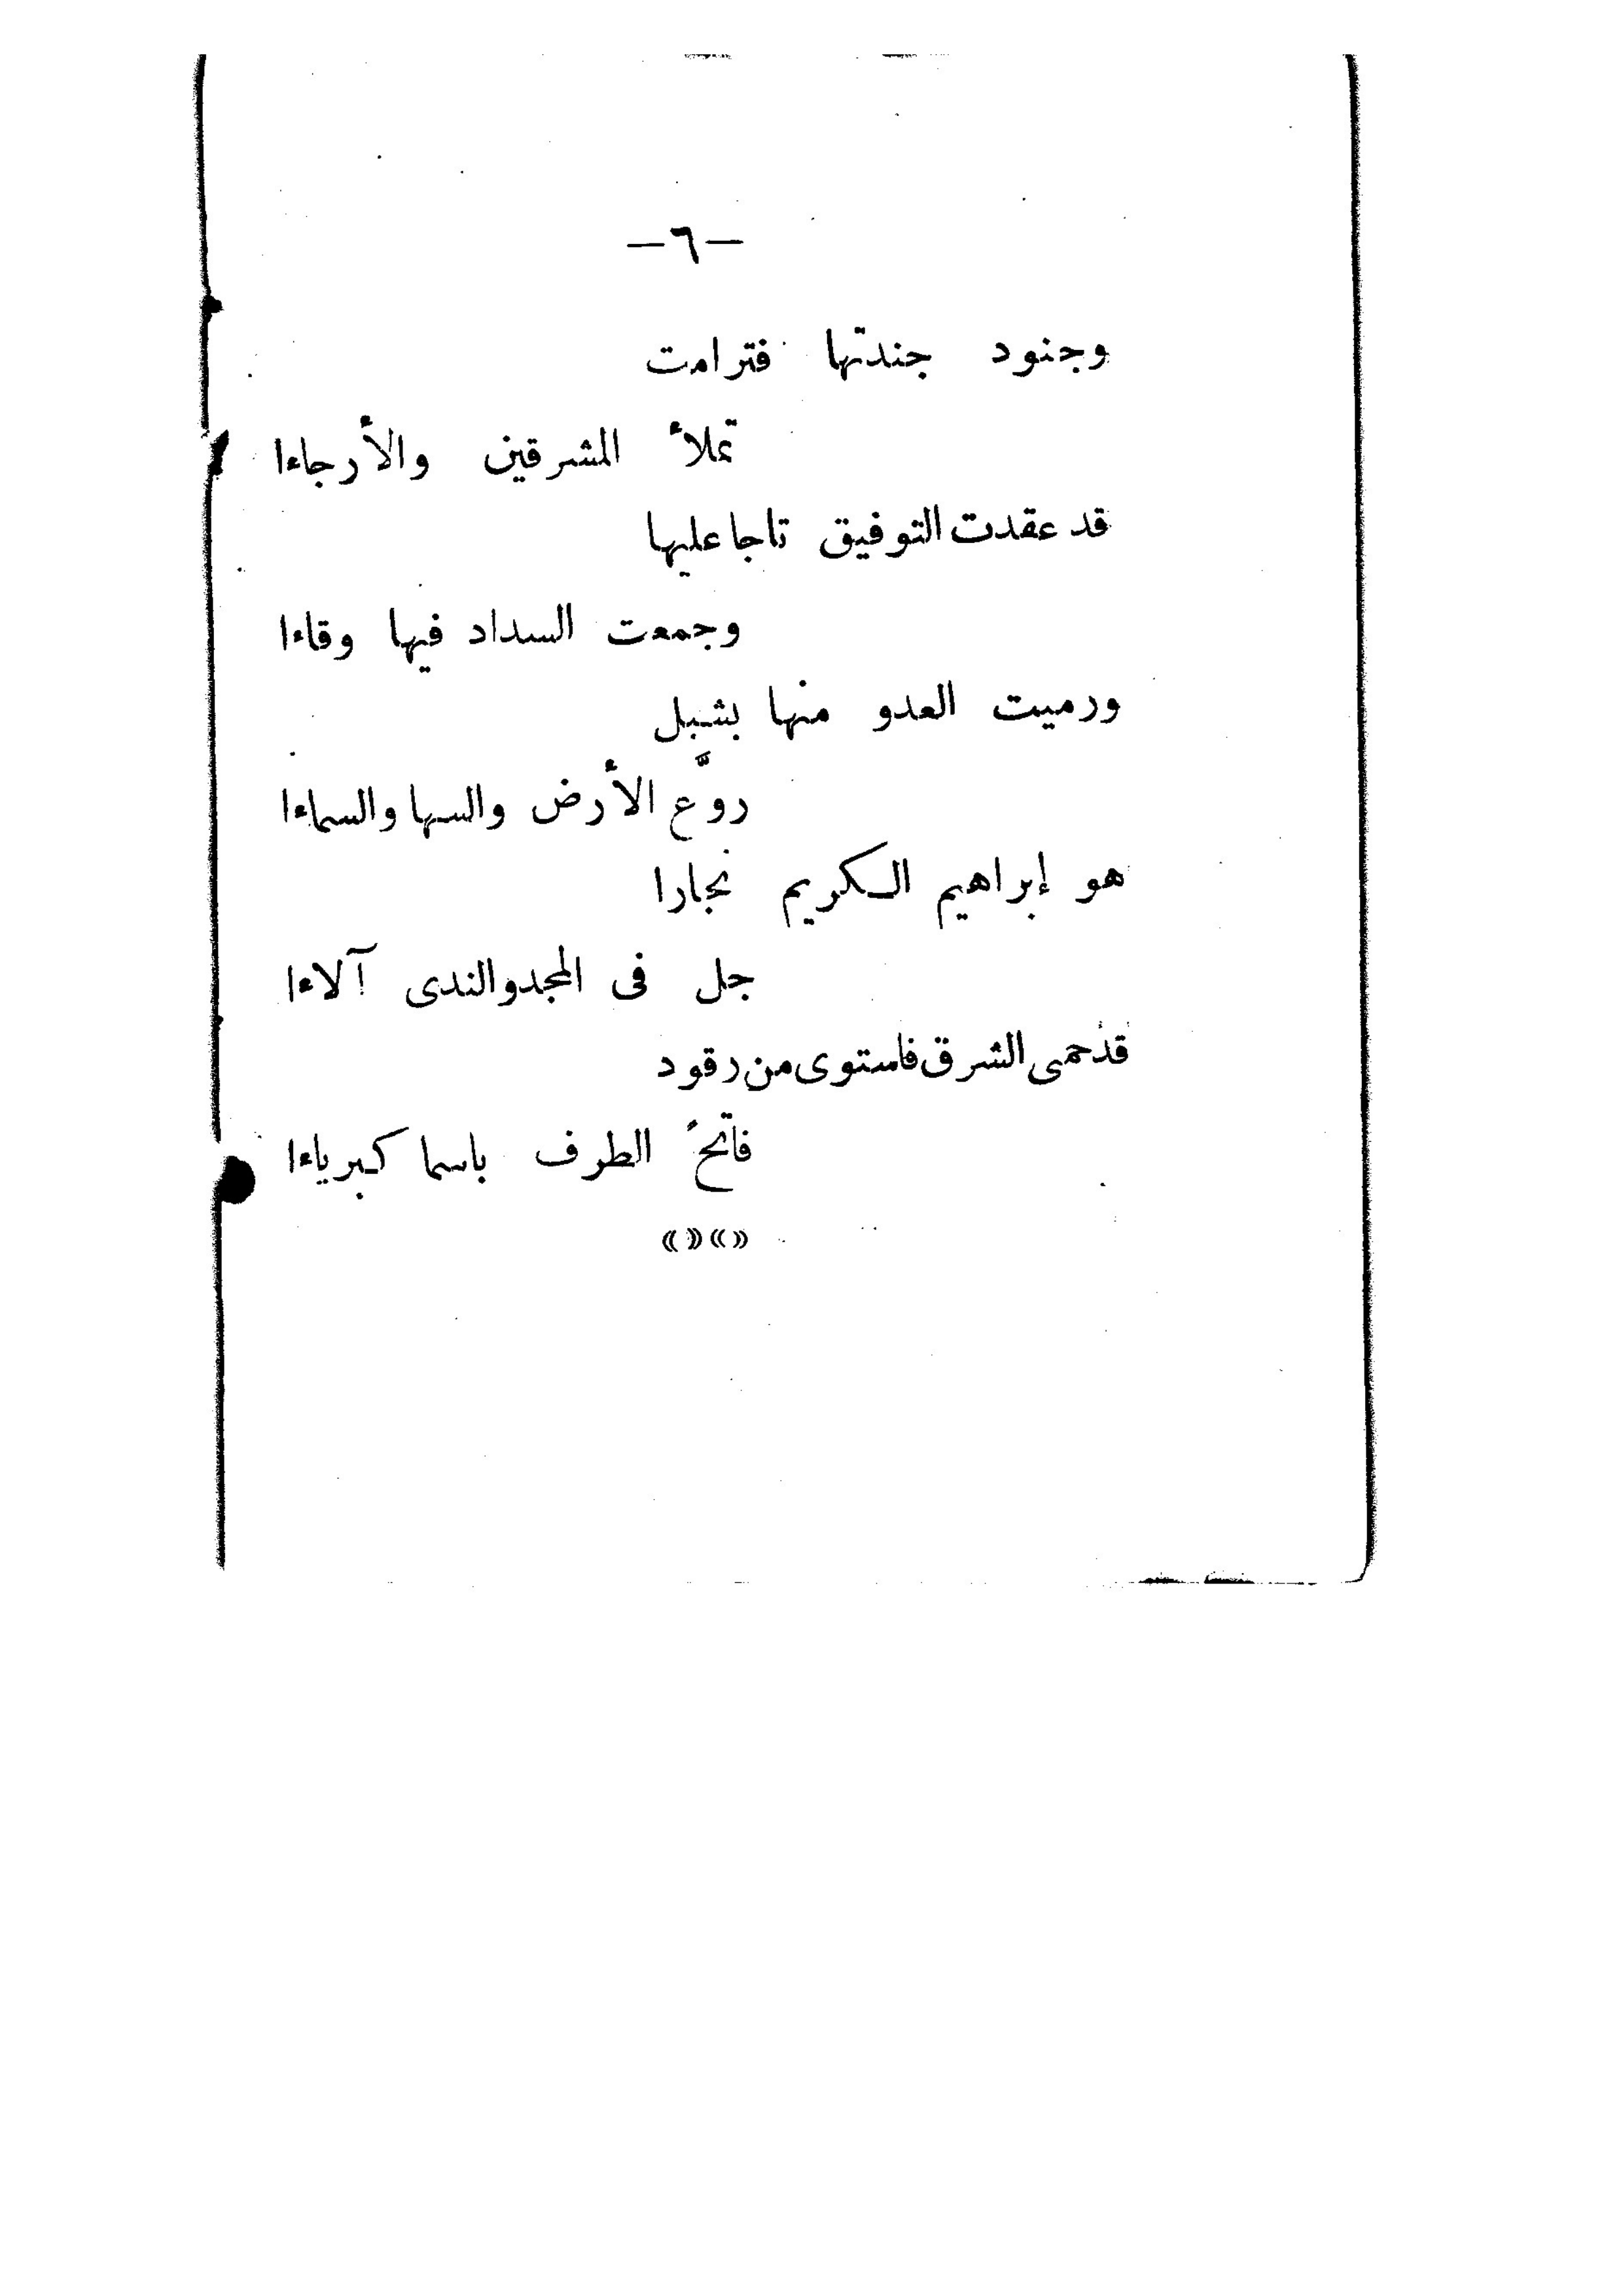 —٦—
وجنود جندتها فترامت
تملأ المشرقين والأرجاءا
قد عقدت التوفيق تاجا عليها
وجمعت السداد فيها وقاءا
ورميت العدو منها بشبل
روَّع الأرض والسها والسماءا
هو إبراهيم الكريم نجارا
جل فى المجد والندى آلاءا
قد حمى الشرق فاستوى من رقود
فاتحَ الطرف باسما كبرياءا
«»«»